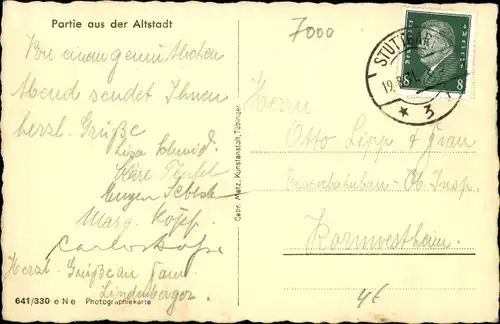 Partie aus der Altstadt
7000
Von einem gemütlichen
Abend sendet Ihnen
herzl. Grüße
Liza Schmid.
Marg. Kopf.
Herzl. Grüße an Fam.
Lindenberger.
641/330 e N e Photographiekarte
Gebr. Metz, Kunstanstalt, Tübingen
STUTTGART
19.
3
Deutsches Reich
8 8
Herrn
Otto Lipp & Frau
Eisenbahnbau-Ob. Insp.
Kornwestheim.
4€